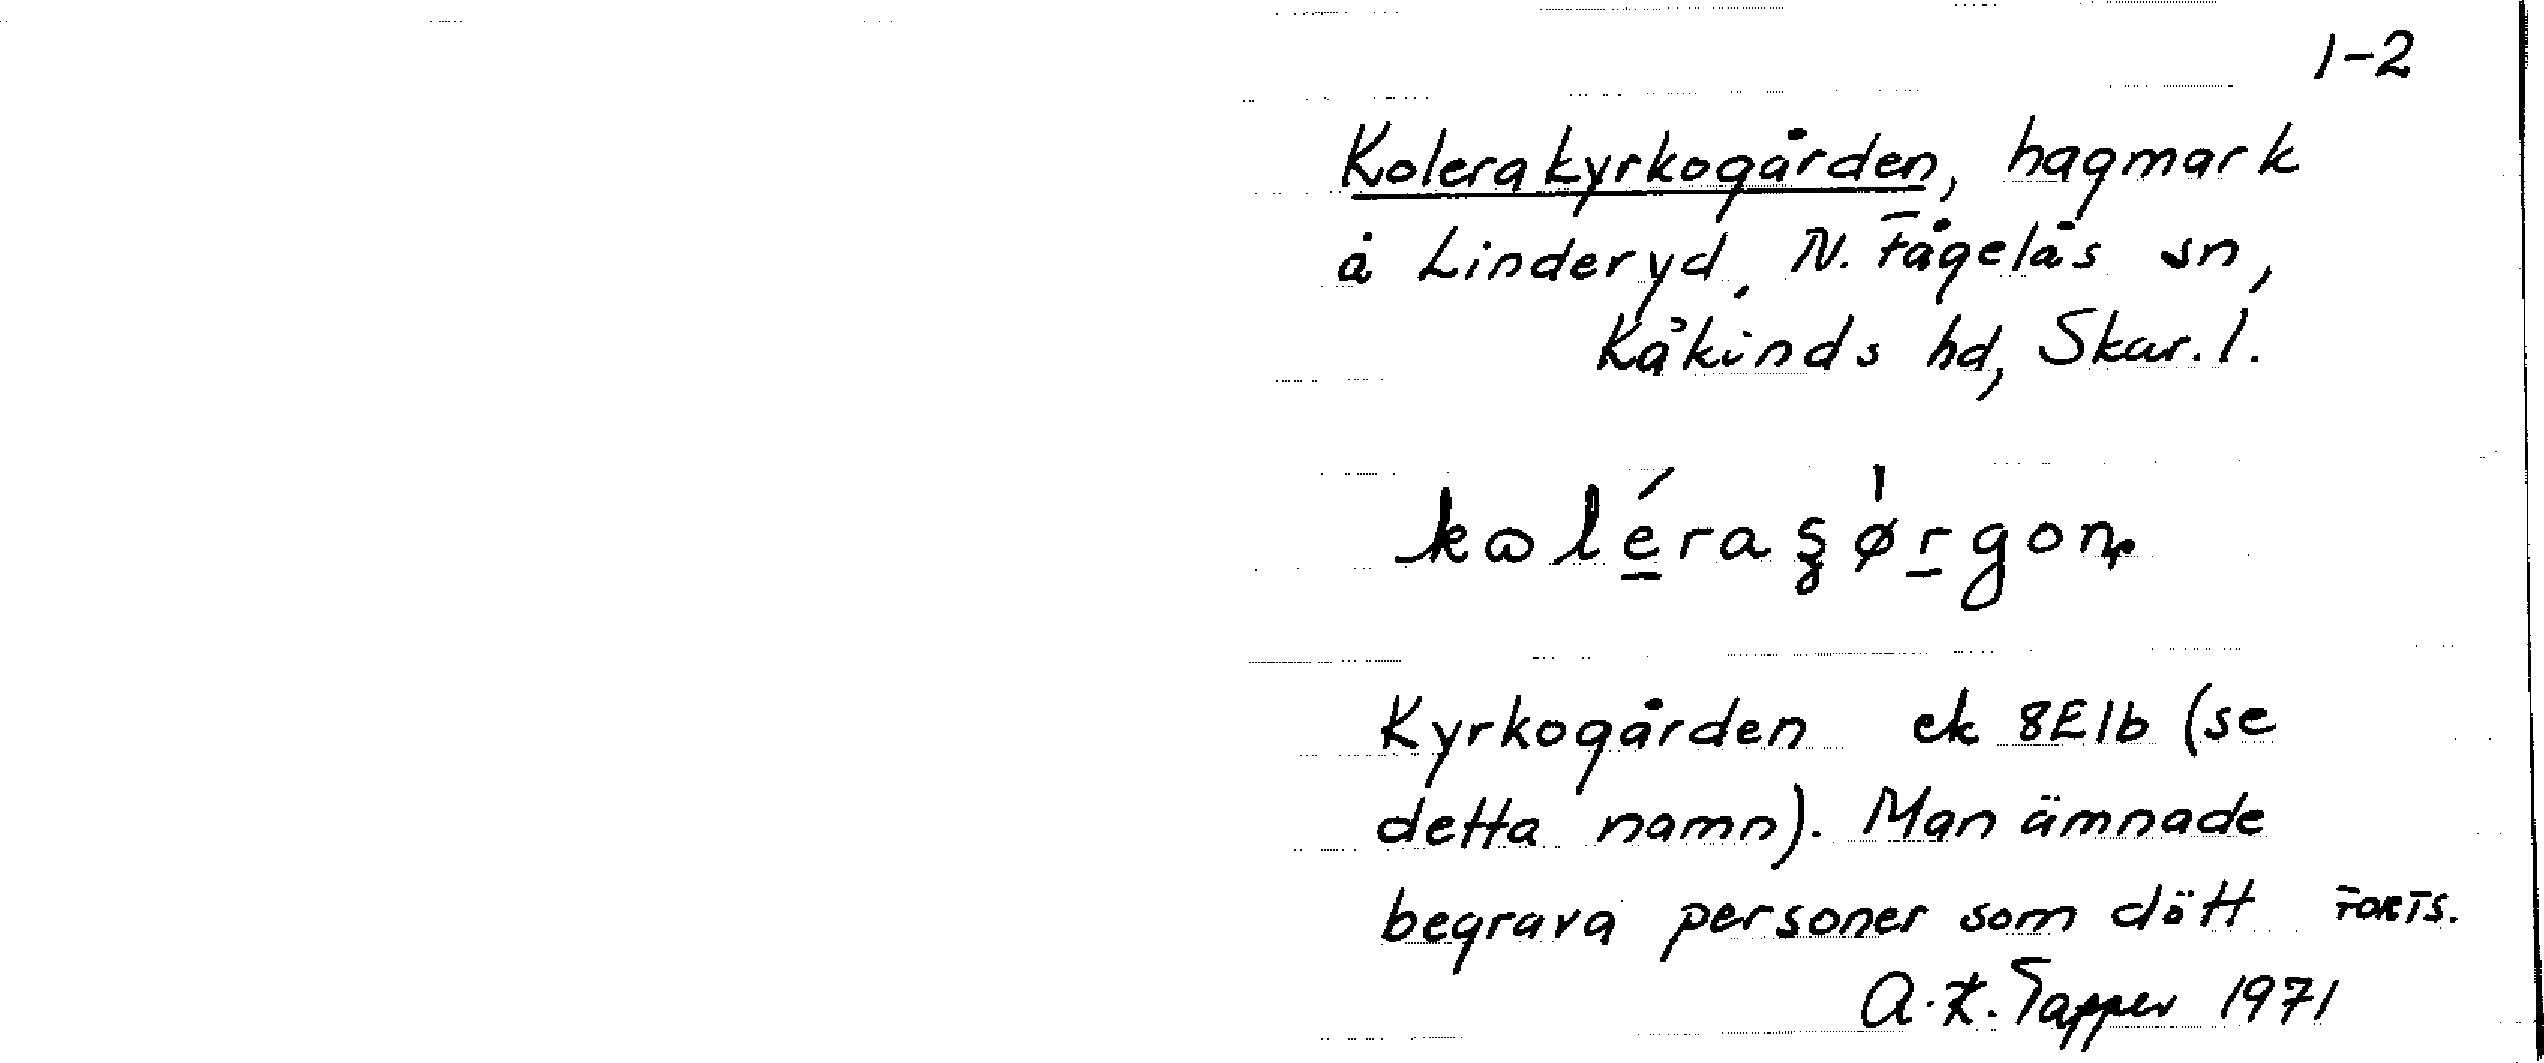 1-2
Kolerakyrkogården, hagmark
å Linderyd, N. Fågelås sn,
Kåkinds hd, Skar. l.
Kyrkogården ek 8E1b (se
detta namn). Man ämnade
begrava personer som dött FORTS.
A.K. Tapper 1971